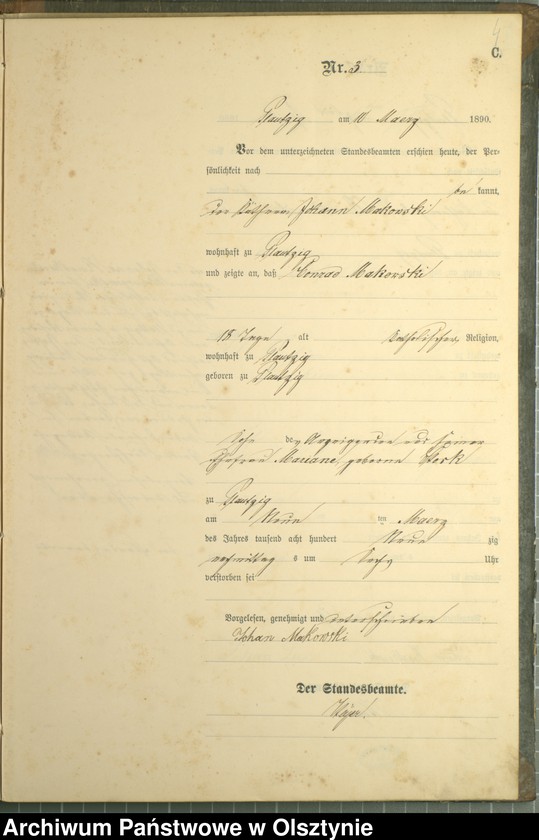 C.
Nr. 3
Plautzig am 10 Maerz 1890.
Vor dem unterzeichneten Standesbeamten erschien heute, der Per-
sönlichkeit nach
be kannt,
der Käthner Johann Makowski
wohnhaft zu Plautzig
und zeigte an, daß Conrad Makowski
18 Tage alt katholischer Religion,
wohnhaft zu Plautzig
geboren zu Plautzig
Sohn des Anzeigenden und seiner
Ehefrau Mariane, geborene
zu Plautzig
am Neun ten Maerz
des Jahres tausend acht hundert Neun zig
vormittag s um Sechs Uhr
verstorben sei
Vorgelesen, genehmigt und unterschrieben
Johan Makowski
Der Standesbeamte.
Archiwum Państwowe w Olsztynie